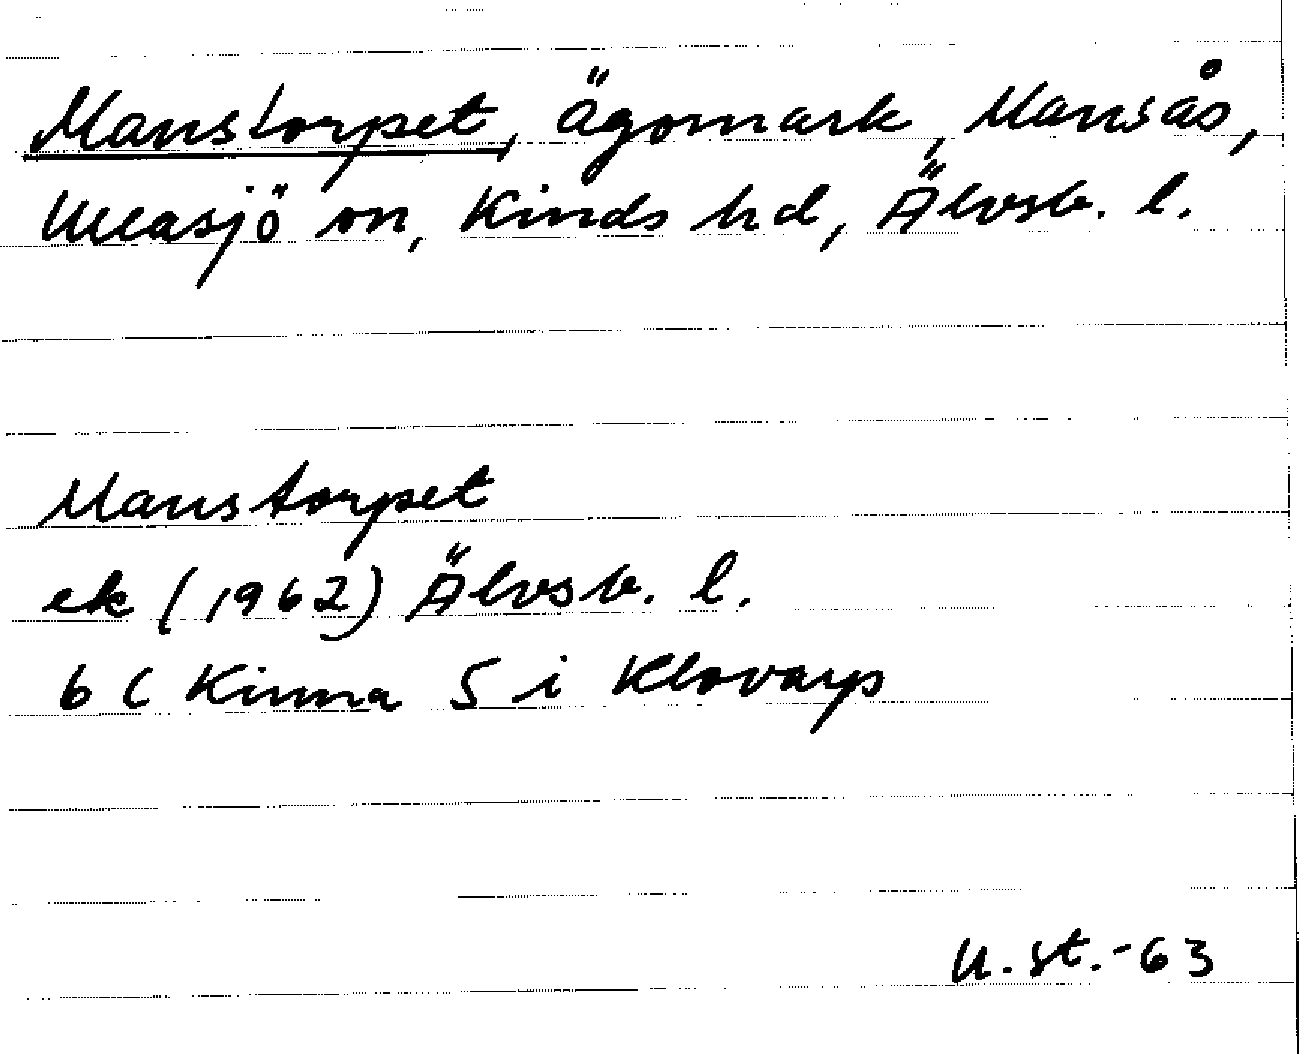 Manstorpet, ägomark, Mansås,
Ullasjö sn, Kinds hd, Älvsb. l.
Manstorpet
ek (1962) Älvsb. l.
6 C Kinna 5 i Klovarp
U. st. -63